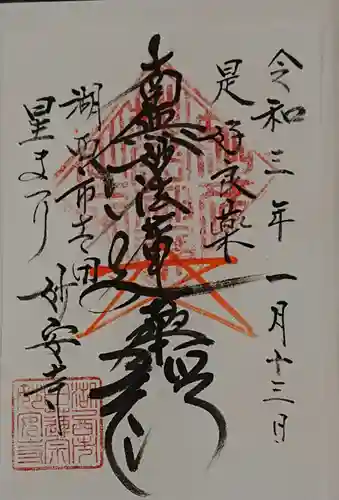 令和三年一月十三日
是好良薬
南無妙法蓮華経
湖西市吉田
星まつり
妙安寺